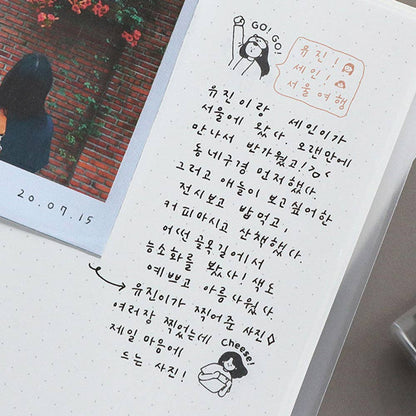 GO! GO!
유진!
세인!
서울여행
유진이랑 세인이가
서울에 왔다 오랜만에
만나서 반가웠고!
동네구경 먼저했다
그리고 애들이 보고싶어한
전시보고 밥먹고,
커피마시고 산책했다.
어떤 골목길에서
능소화를 봤다! 색도
예쁘고 아름다웠다.
유진이가 찍어준 사진
여러장 찍었는데
제일 마음에
드는 사진!
Cheese!
20.07.15